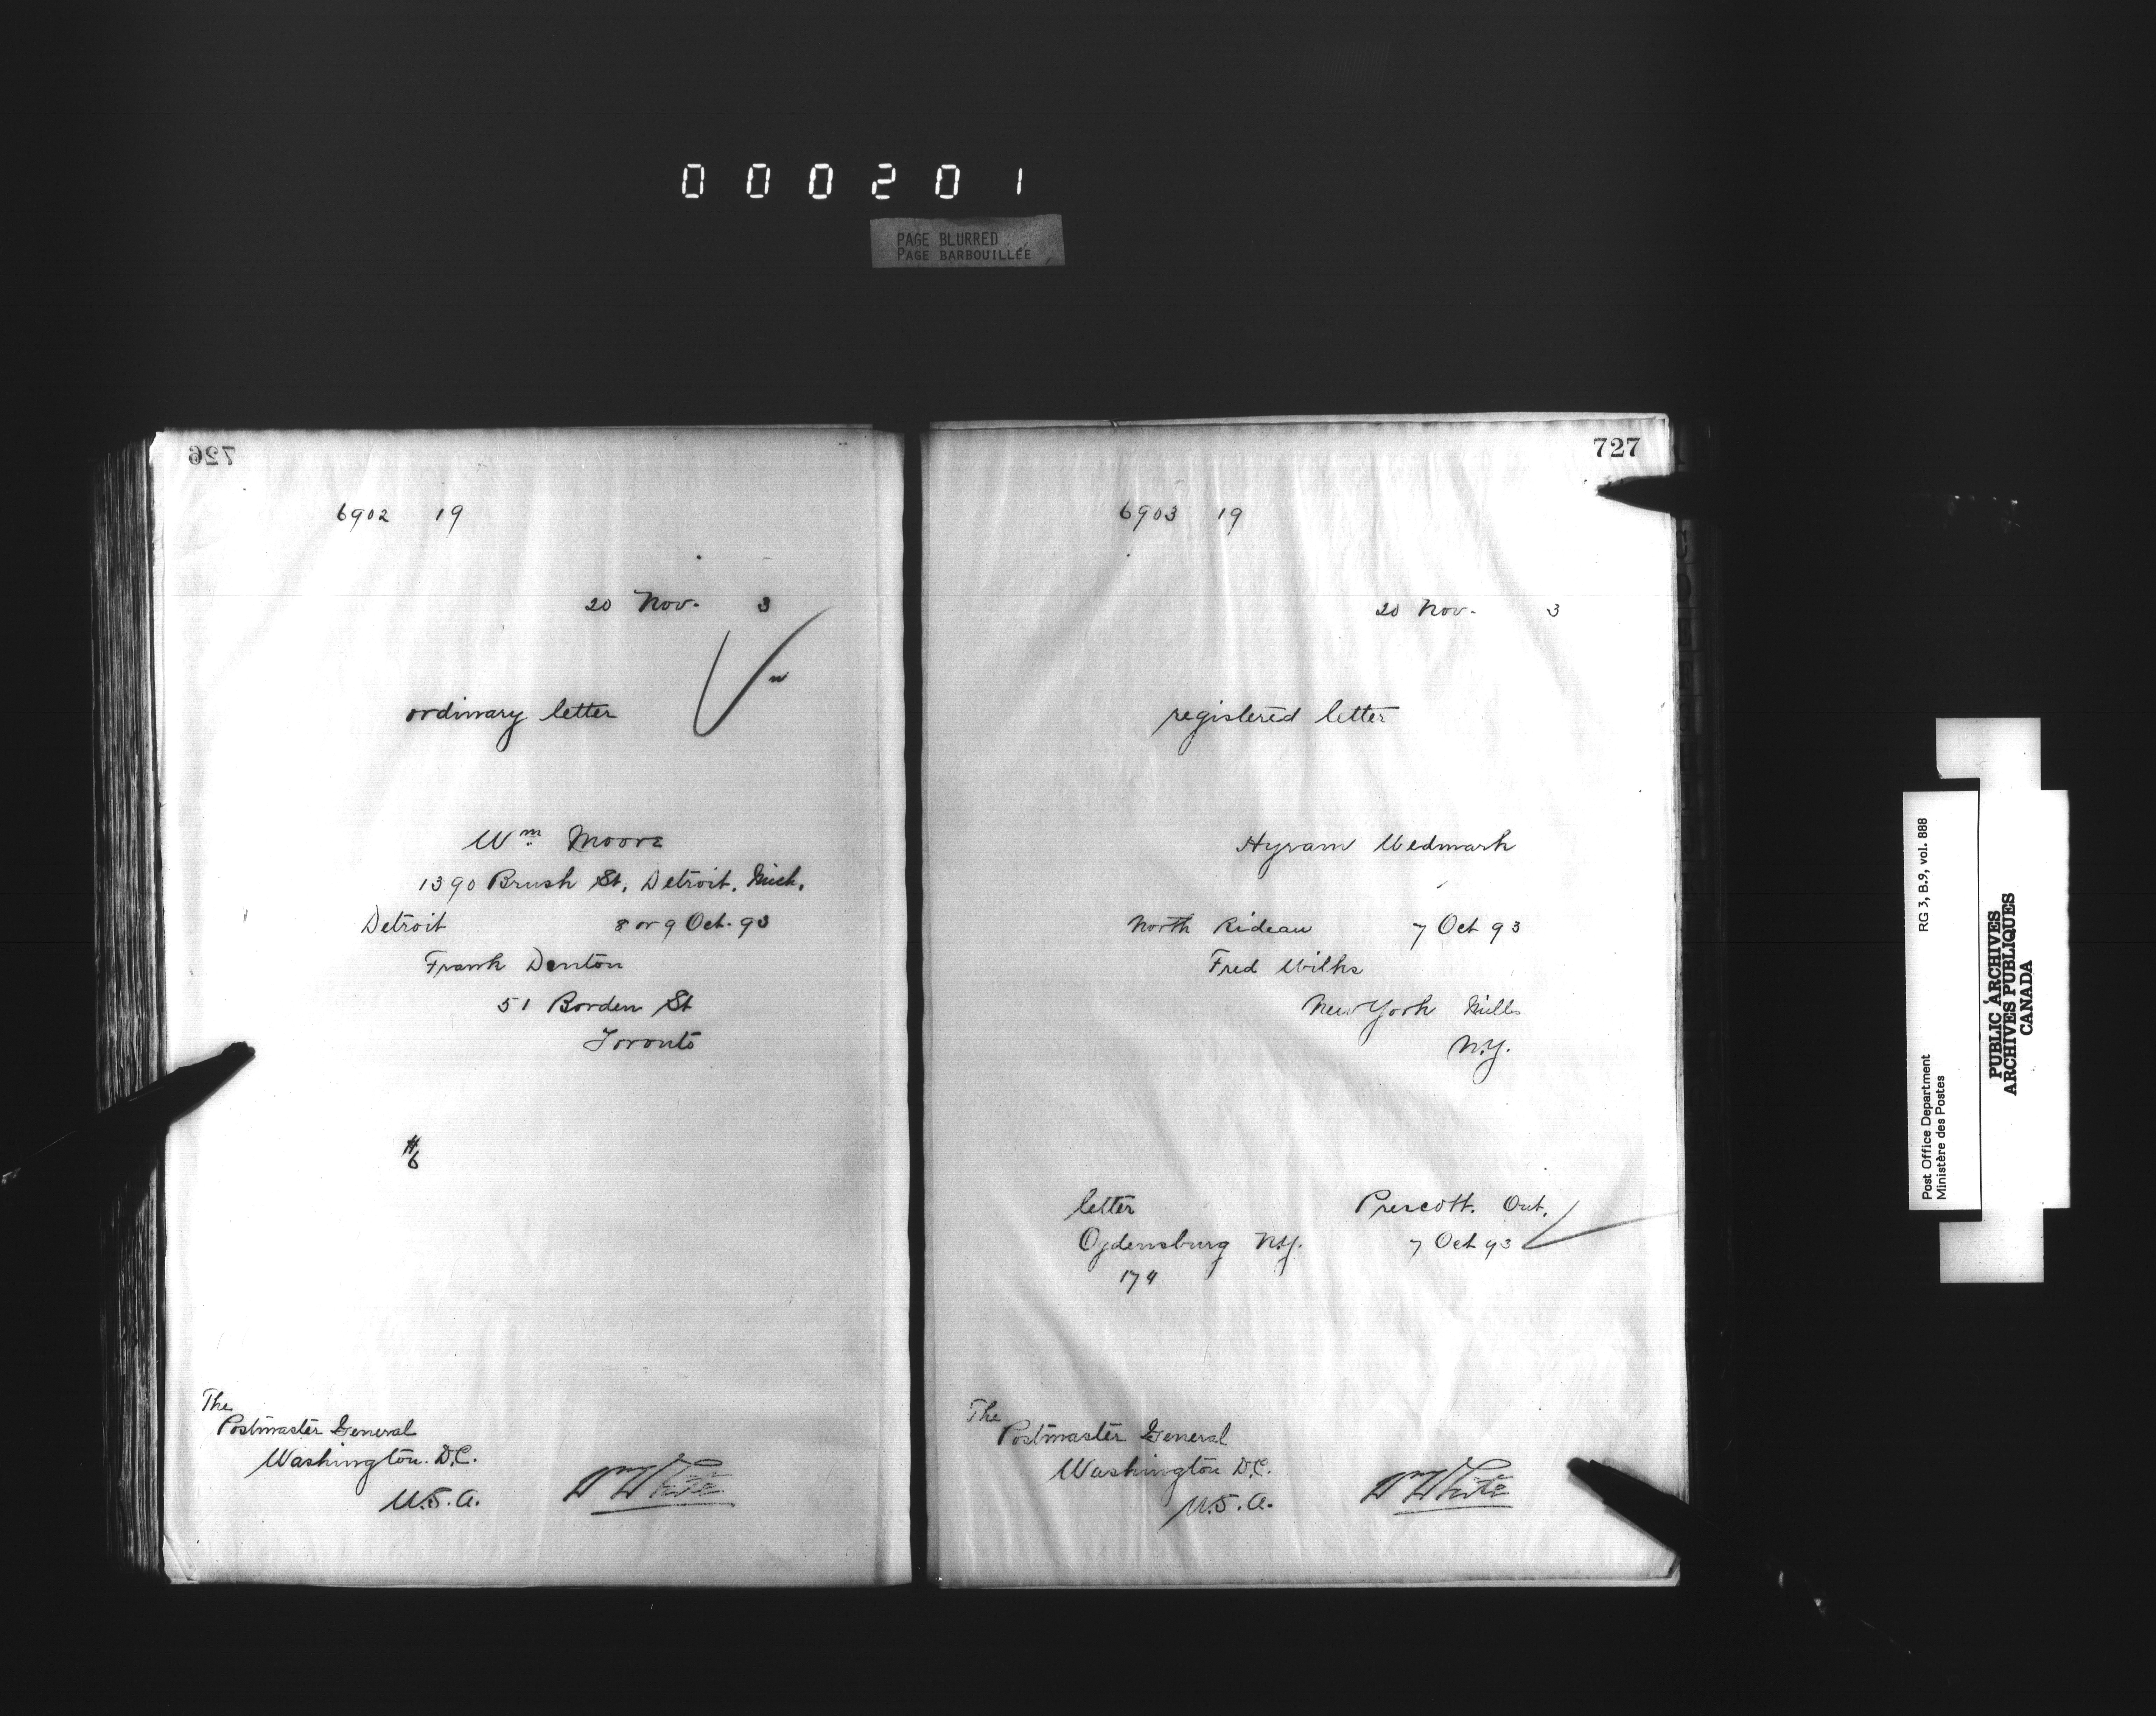 000201
PAGE BLURRED
PAGE BARBOUILLÉE
726
6902 19
20 Nov. 3
ordinary letter
Wm. Moore
1390 Brush St, Detroit, Mich.
Detroit 8 or 9 Oct. 93
Frank Denton
51 Borden St
Toronto
#6
The
Postmaster General
Washington. D.C.
U.S.A.
Wm White
727
6903 19
20 Nov. 3
registered letter
Hyram Wedmark
North Rideau 7 Oct 93
Fred Wilks
New York Mills
N.Y.
letter Prescott. Ont.
Ogdensburg N.Y. 7 Oct 93
174
The
Postmaster General
Washington D.C.
U.S.A.
Wm White
Post Office Department RG 3, B.9, vol. 888
Ministère des Postes
PUBLIC ARCHIVES
ARCHIVES PUBLIQUES
CANADA